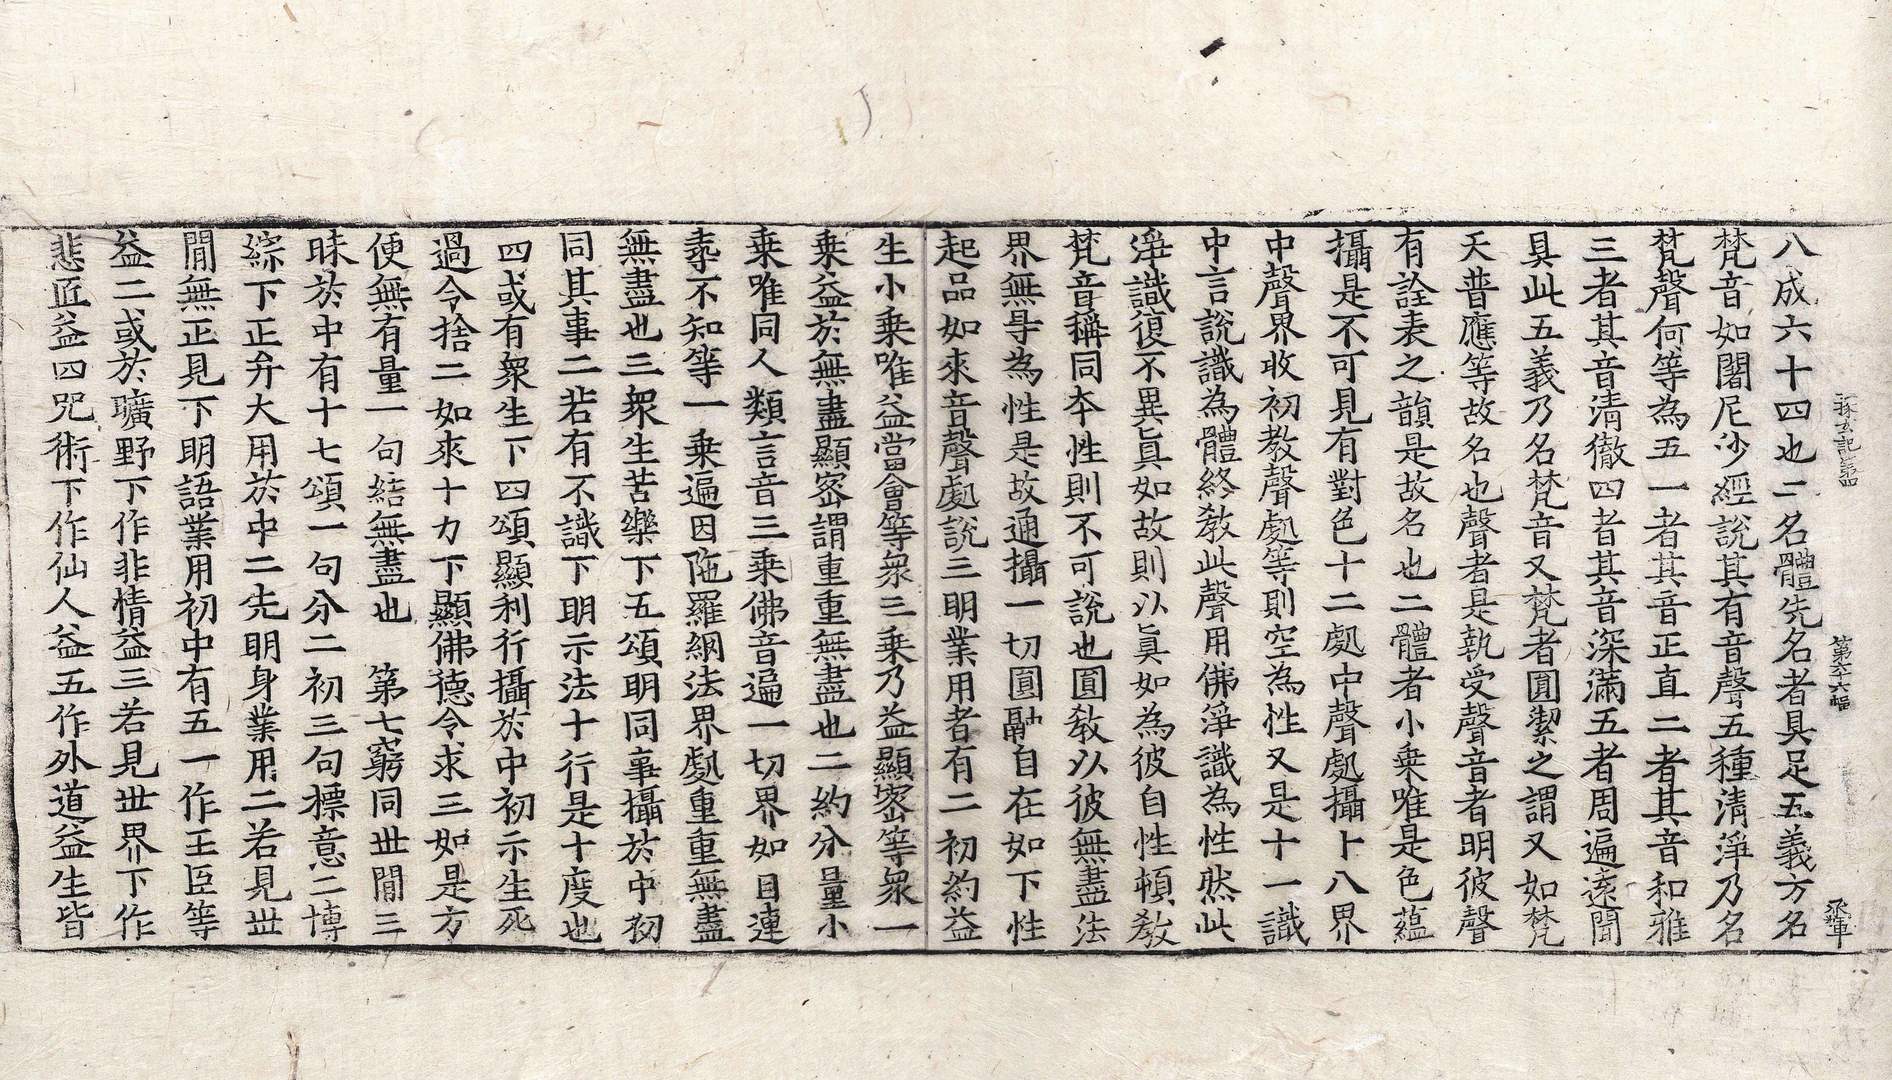 探玄記三
第六十六幅
八成六十四也二名體先名者具足五義方名
梵音如闍尼沙經說其有音聲五種清淨乃名
梵聲何等為五一者其音正直二者其音和雅
三者其音清徹四者其音深滿五者周遍遠聞
具此五義乃名梵音又梵者圓潔之謂又如梵
天普應等故名也聲者是執受聲音者明彼聲
有詮表之韻是故名也二體者小乗唯是色蘊
攝是不可見有對色十二處中聲處攝十八界
中聲界收初教聲處等則空為性又是十一識
中言說識為體終教此聲用佛淨識為性然此
淨識復不異真如故則以真如為彼自性頓教
梵音稱同本性則不可說也圓教以彼無盡法
界無㝵為性是故通攝一切圓融自在如下性
起品如來音聲處說三明業用者有二初約益
生小乗唯益當會等衆三乗乃益顯密等衆一
乗益於無盡顯密謂重重無盡也二約分量小
乗唯同人類言音三乗佛音遍一切界如目連
等不知等一乗遍因陁羅網法界處重重無盡
無盡也三衆生苦樂下五頌明同事攝於中初
同其事二若有不識下明示法十行是十度也
四或有衆生下四頌顯利行攝於中初示生死
過令捨二如來十力下顯佛德令求三如是方
便無有量一句結無盡也　第七窮同世間三
昧於中有十七頌一句分二初三句標意二博
綜下正弁大用於中二先明身業用二若見世
間無正見下明語業用初中有五一作王臣等
益二或於曠野下作非情益三若見世界下作
悲匠益四呪術下作仙人益五作外道益生皆